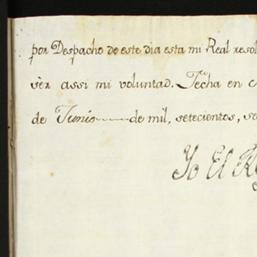 por Despacho de este dia esta mi Real resol
ser assi mi voluntad. Fecha en
de Junio de mil, setecientos, s
Yo El R